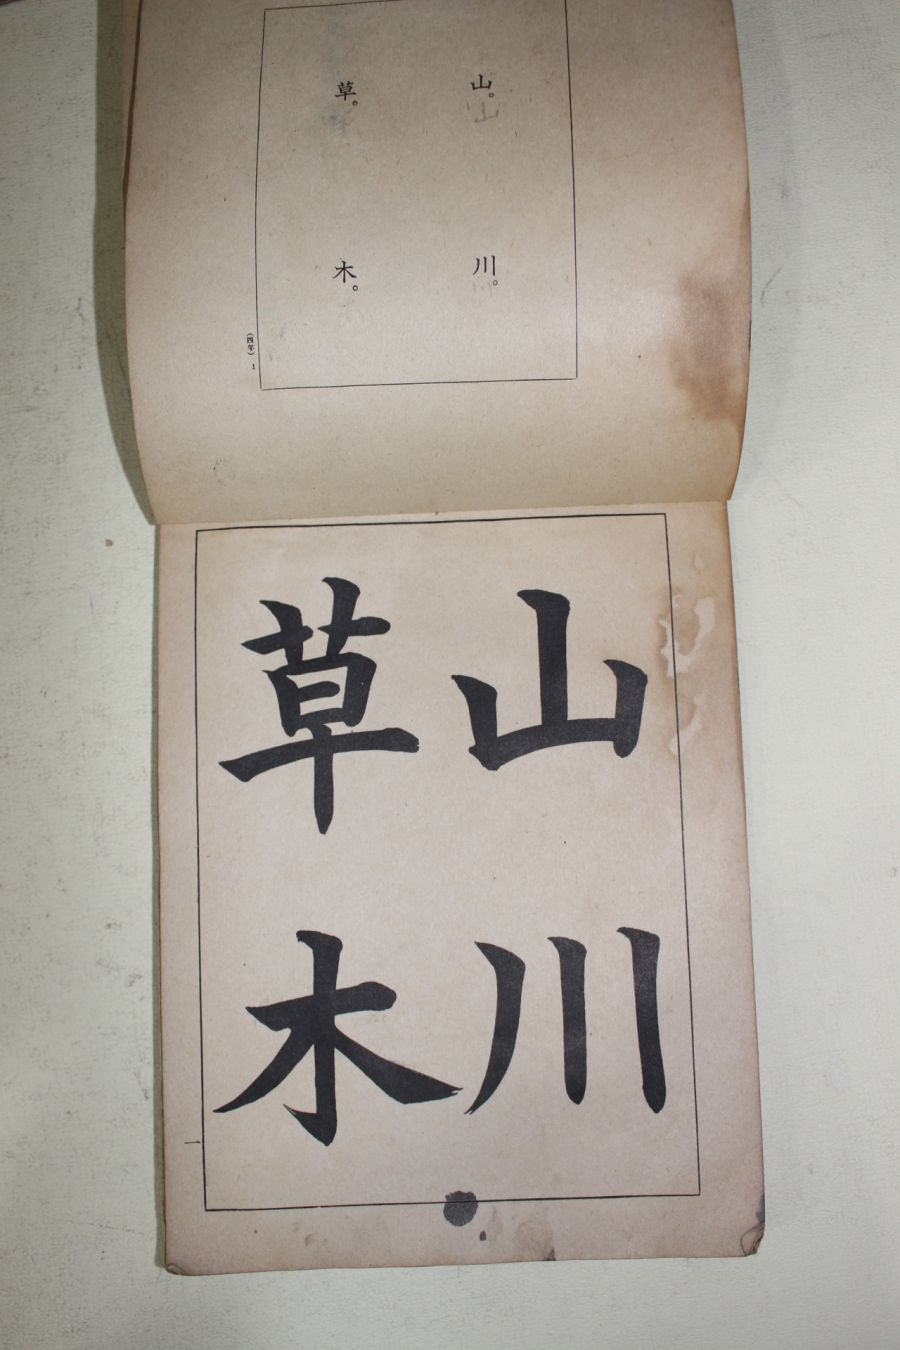 山。川。
草。木。
(四年) 1
山川
草木
一